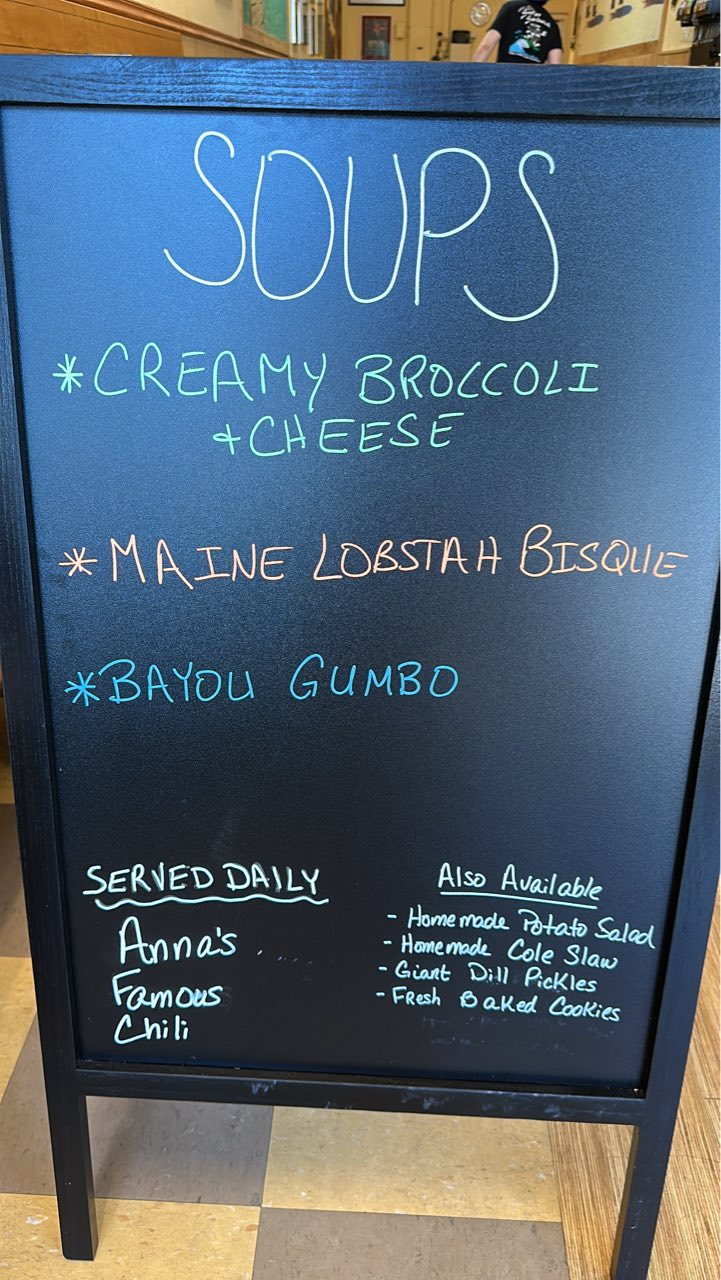 SOUPS
*CREAMY BROCCOLI
+CHEESE
*MAINE LOBSTAH BISQUE
*BAYOU GUMBO
SERVED DAILY
Anna's
Famous
Chili
Also Available
- Homemade Potato Salad
- Homemade Cole Slaw
- Giant Dill Pickles
- Fresh Baked Cookies